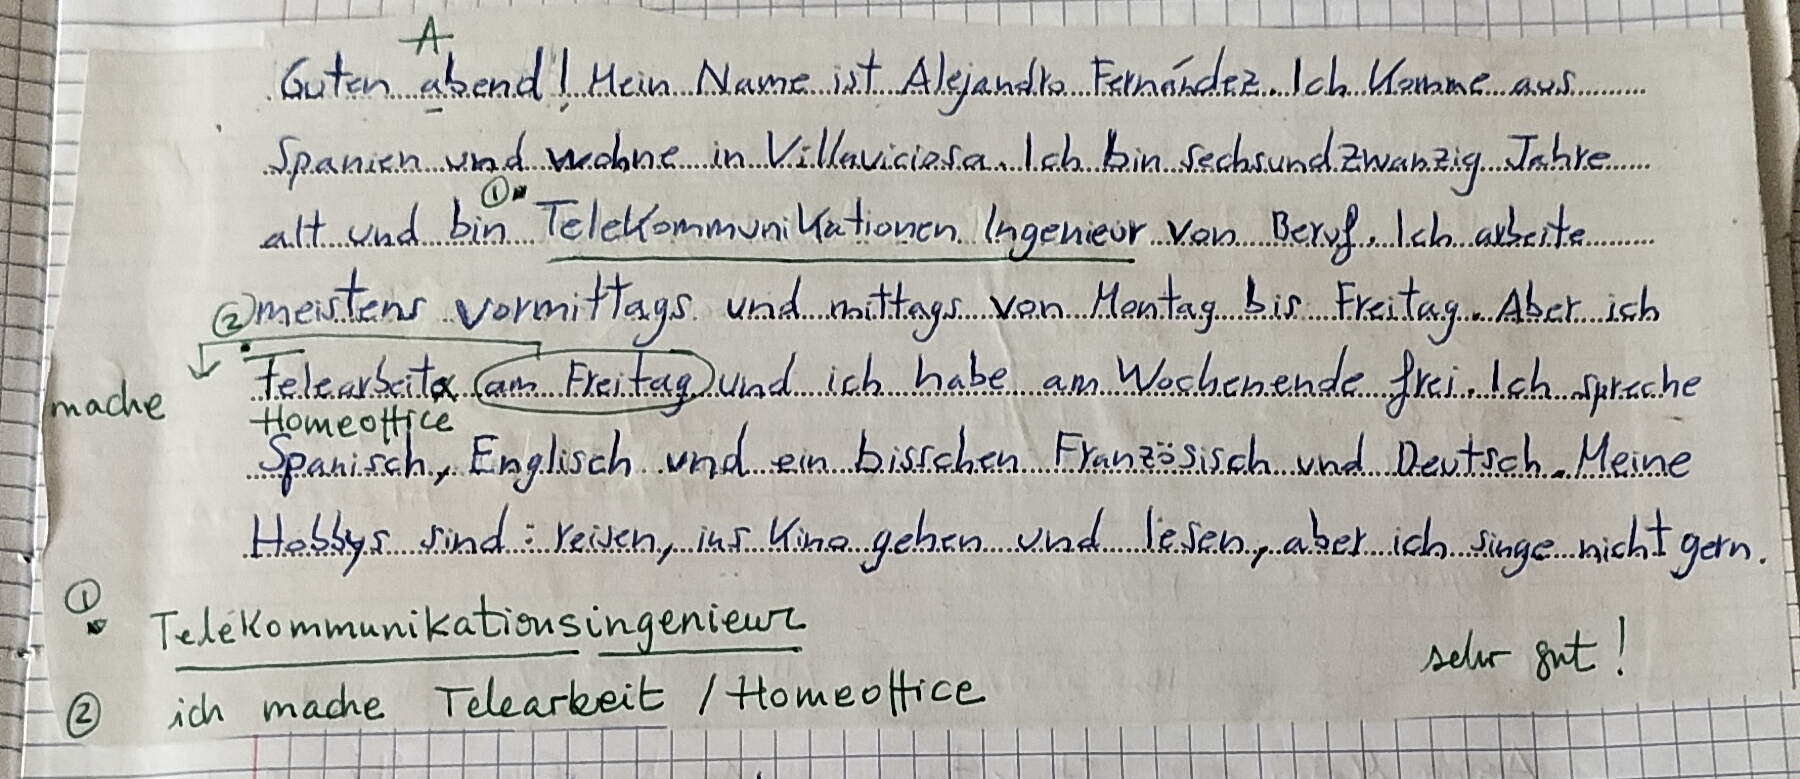 A
Guten abend! Mein Name ist Alejandro Fernández. Ich komme aus
Spanien und wohne in Villaviciosa. Ich bin sechsundzwanzig Jahre
①
alt und bin Telekommunikationen Ingenieur von Beruf. Ich arbeite
② meistens vormittags und mittags von Montag bis Freitag. Aber ich
mache Telearbeite am Freitag und ich habe am Wochenende frei. Ich spreche
Homeoffice
Spanisch, Englisch und ein bisschen Französisch und Deutsch. Meine
Hobbys sind: reisen, ins Kino gehen und lesen, aber ich singe nicht gern.
① Telekommunikationsingenieur
sehr gut!
② ich mache Telearbeit / Homeoffice